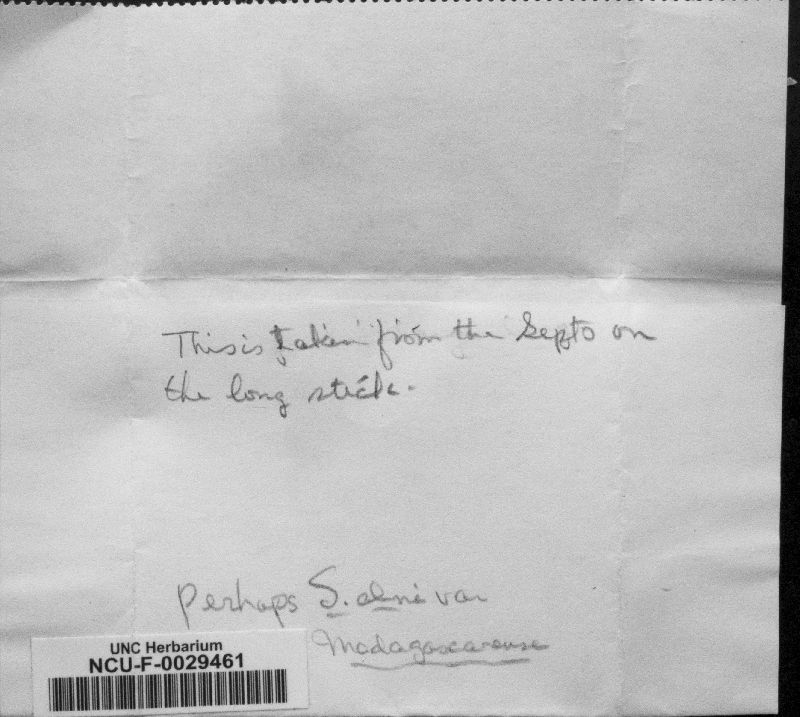 This is taken from the Septo on
the long stick.
Perhaps S. alni var
Madagascarense
UNC Herbarium
NCU-F-0029461